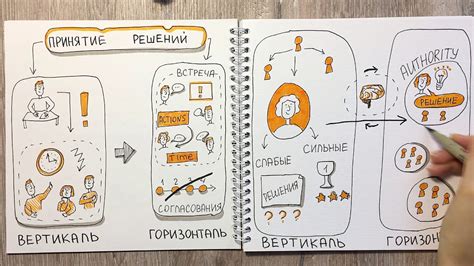 ПРИНЯТИЕ РЕШЕНИЙ
!
ВСТРЕЧА
!
ACTIONS
TIME
1 2 3 4
СОГЛАСОВАНИЯ
ВЕРТИКАЛЬ
ГОРИЗОНТАЛЬ
AUTHORITY
РЕШЕНИЕ
СЛАБЫЕ
СИЛЬНЫЕ
РЕШЕНИЯ
1
? ? ? ?
ВЕРТИКАЛЬ
ГОРИЗОНТАЛЬ